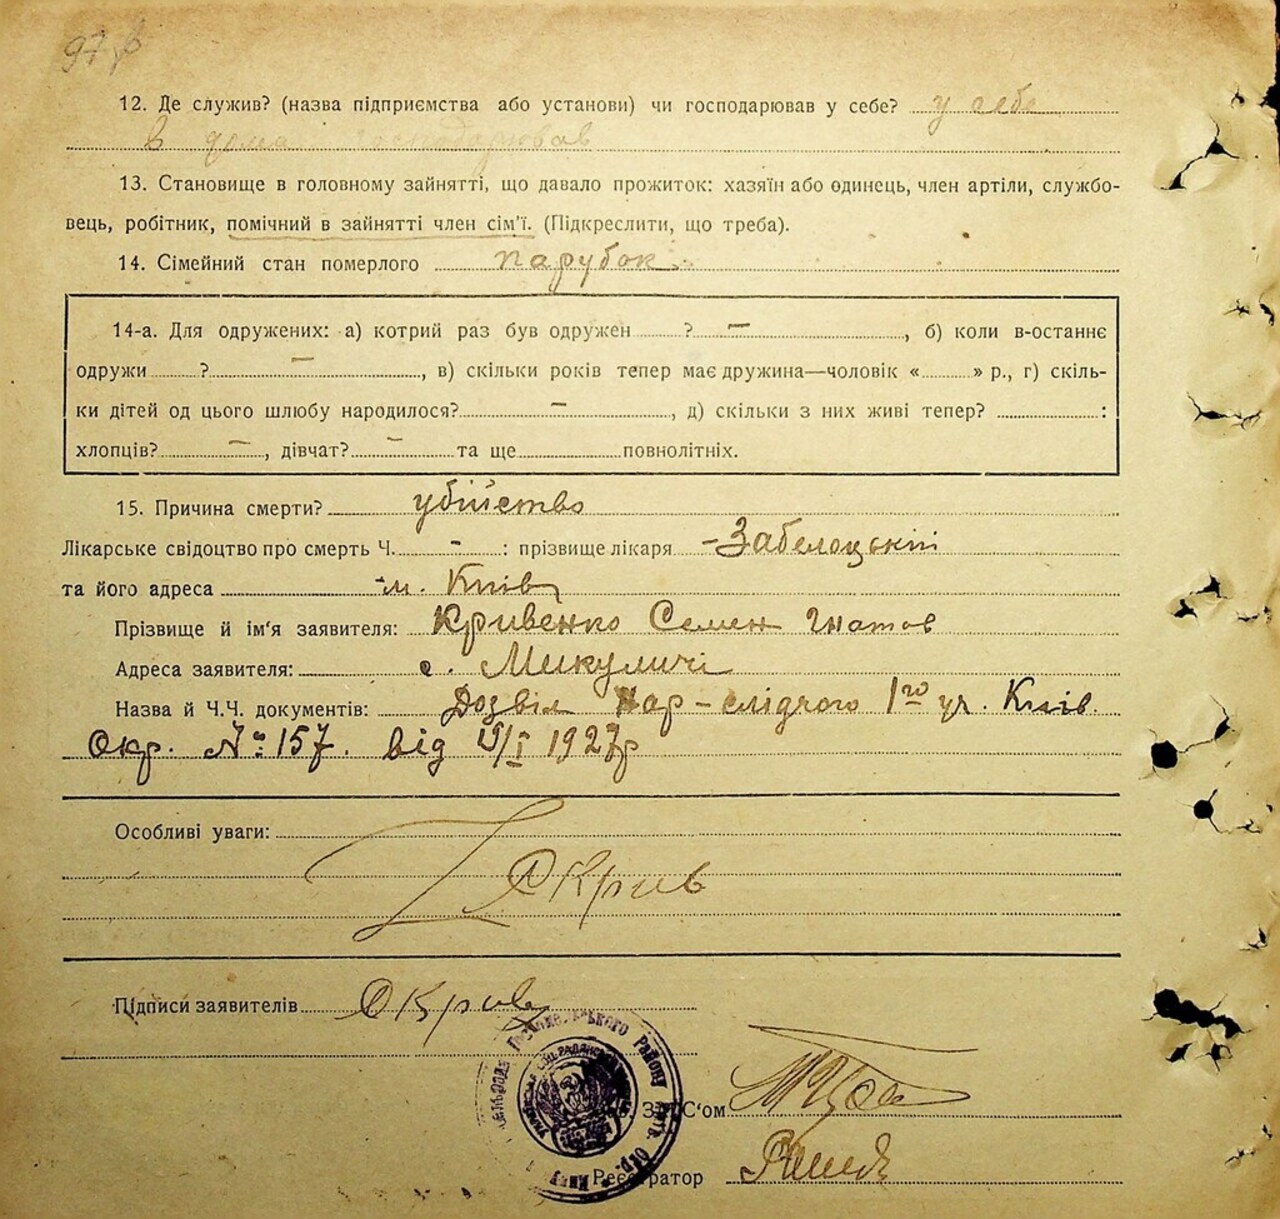 97
12. Де служив? (назва підприємства або установи) чи господарював у себе? у себе
в дома господарював
13. Становище в головному зайнятті, що давало прожиток: хазяїн або одинець, член артіли, службо-
вець, робітник, помічний в зайнятті член сім'ї. (Підкреслити, що треба).
14. Сімейний стан померлого парубок
14-а. Для одружених: а) котрий раз був одружен ? — , б) коли в-останнє
одружи ? — , в) скільки років тепер має дружина—чоловік « » р., г) скіль-
ки дітей од цього шлюбу народилося? — , д) скільки з них живі тепер? :
хлопців? — , дівчат? — та ще повнолітніх.
15. Причина смерти? убійство
Лікарське свідоцтво про смерть Ч. - : прізвище лікаря - Забелоцькій
та його адреса м. Київ
Прізвище й ім'я заявителя: Кривенко Семен Гнатов
Адреса заявителя: с. Микуличі
Назва й Ч.Ч. документів: Дозвіл Нар-слідчого 1го уч. Київ.
Окр. № 157. від 15/I 1927р
Особливі уваги:
СКрив
Підписи заявителів СКрив
Району
Окр.
ЗАГС'ом
Реєстратор